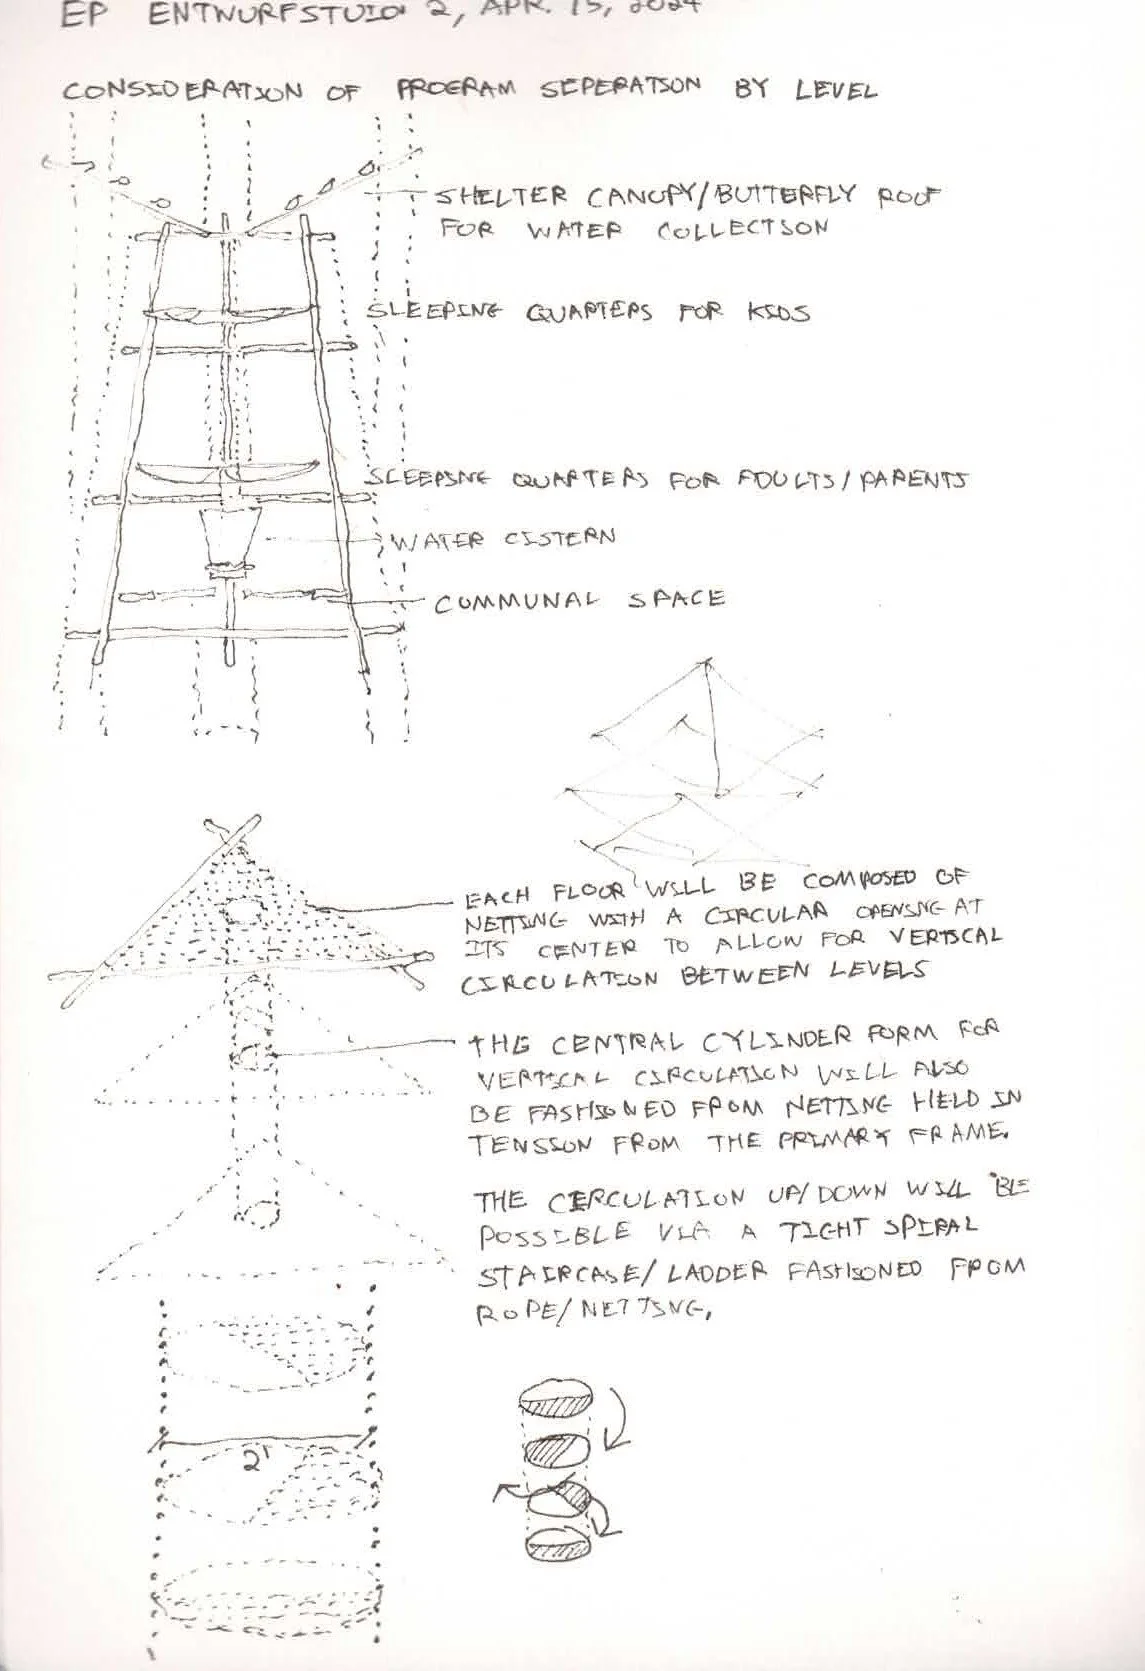 EP ENTWURFSTUDIO 2, APR. 15, 2024
CONSIDERATION OF PROGRAM SEPERATION BY LEVEL
SHELTER CANOPY/BUTTERFLY ROOF
FOR WATER COLLECTION
SLEEPING QUARTERS FOR KIDS
SLEEPING QUARTERS FOR ADULTS/PARENTS
WATER CISTERN
COMMUNAL SPACE
EACH FLOOR WILL BE COMPOSED OF
NETTING WITH A CIRCULAR OPENING AT
ITS CENTER TO ALLOW FOR VERTICAL
CIRCULATION BETWEEN LEVELS
THE CENTRAL CYLINDER FORM FOR
VERTICAL CIRCULATION WILL ALSO
BE FASHIONED FROM NETTING HELD IN
TENSION FROM THE PRIMARY FRAME.
THE CERCULATION UP/DOWN WILL BE
POSSIBLE VIA A TIGHT SPIRAL
STAIRCASE/LADDER FASHIONED FROM
ROPE/NETTING,
2'